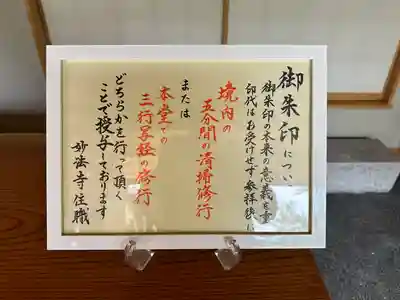 御朱印について
御朱印の本来の意義を重
印代はお受けせず参拝後に
境内の
五分間の清掃修行
または
本堂での
三行写経の修行
どちらかを行って頂く
ことで授与しております
妙法寺住職